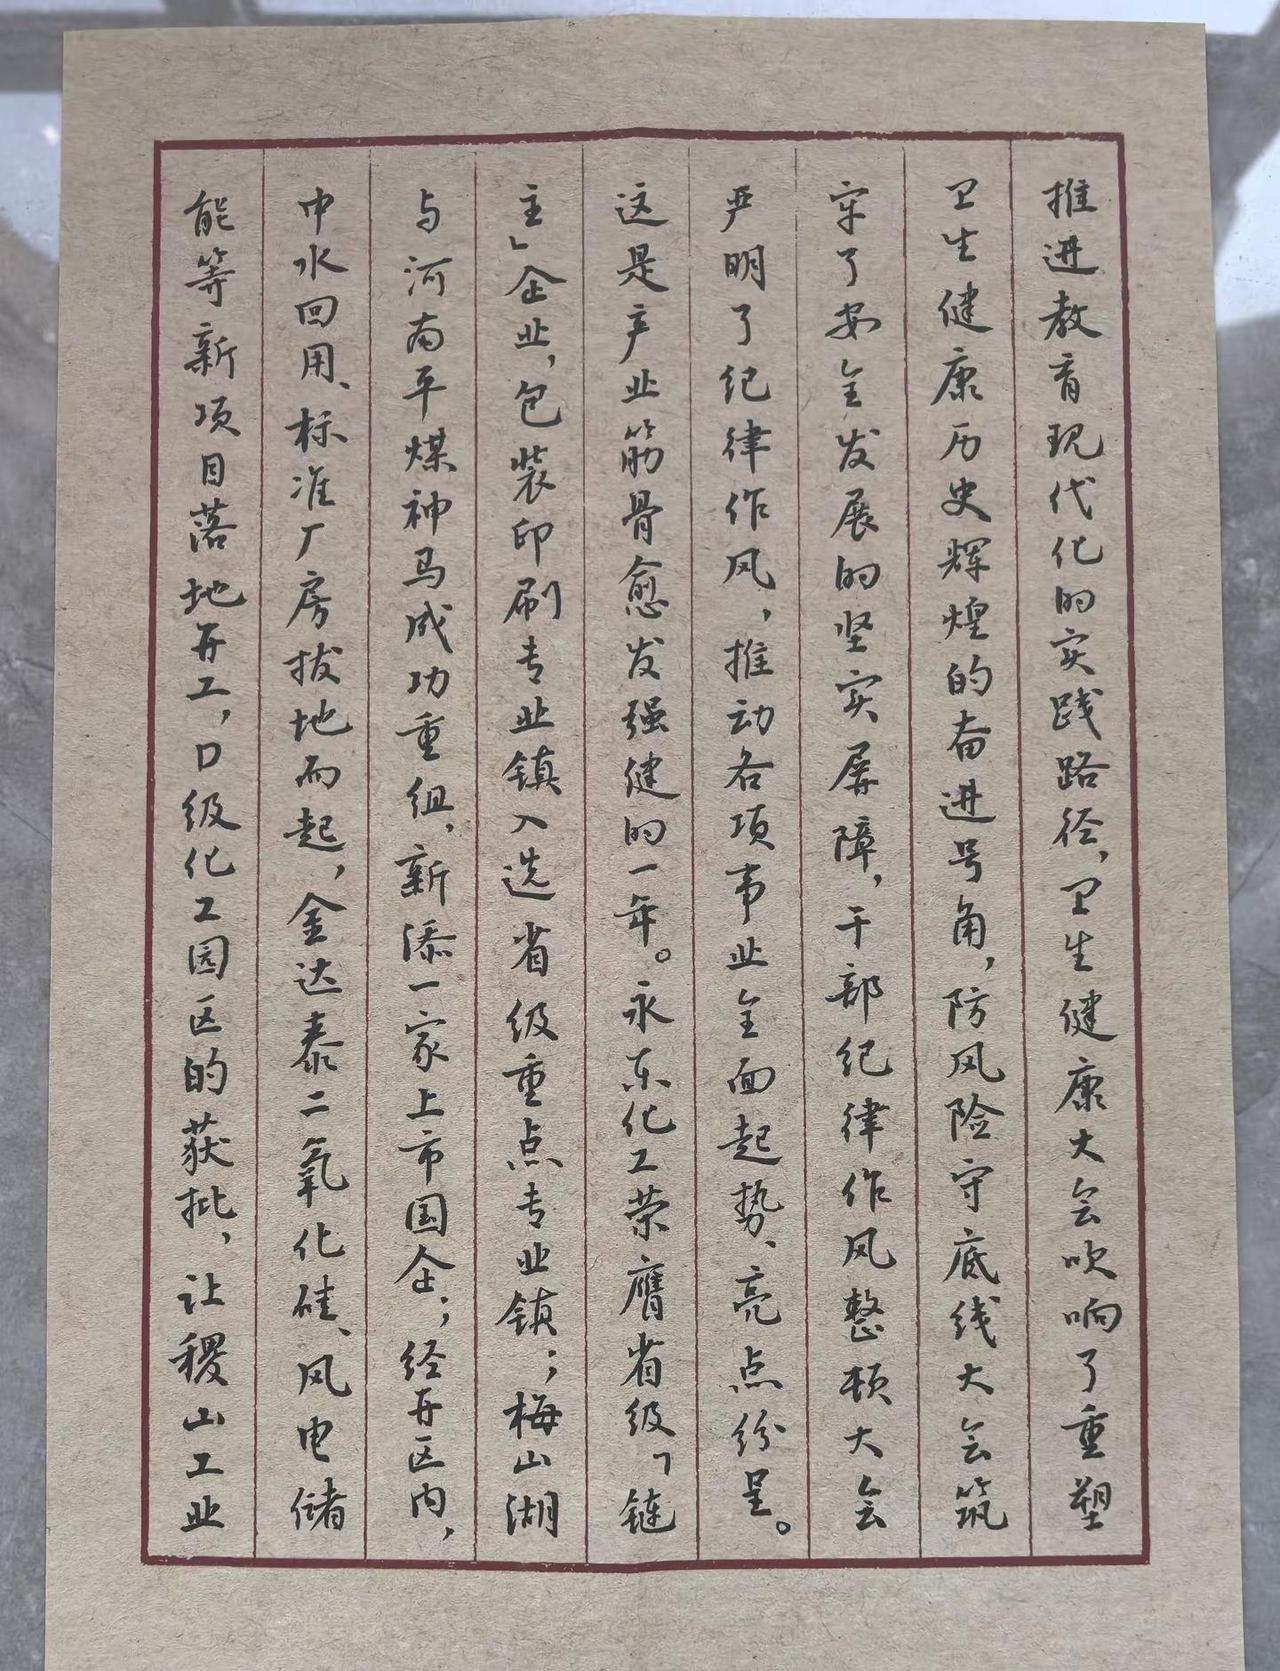 推进教育现代化的实践路径，卫生健康大会吹响了重塑
卫生健康历史辉煌的奋进号角，防风险守底线大会筑
牢了安全发展的坚实屏障，干部纪律作风整顿大会
严明了纪律作风，推动各项事业全面起势、亮点纷呈。
这是产业筋骨愈发强健的一年。永东化工荣膺省级「链
主」企业，包装印刷专业镇入选省级重点专业镇；梅山湖
与河南平煤神马成功重组，新添一家上市国企；经开区内，
中水回用、标准厂房拔地而起，金达泰二氧化硅、风电储
能等新项目落地开工，口级化工园区的获批，让稷山工业